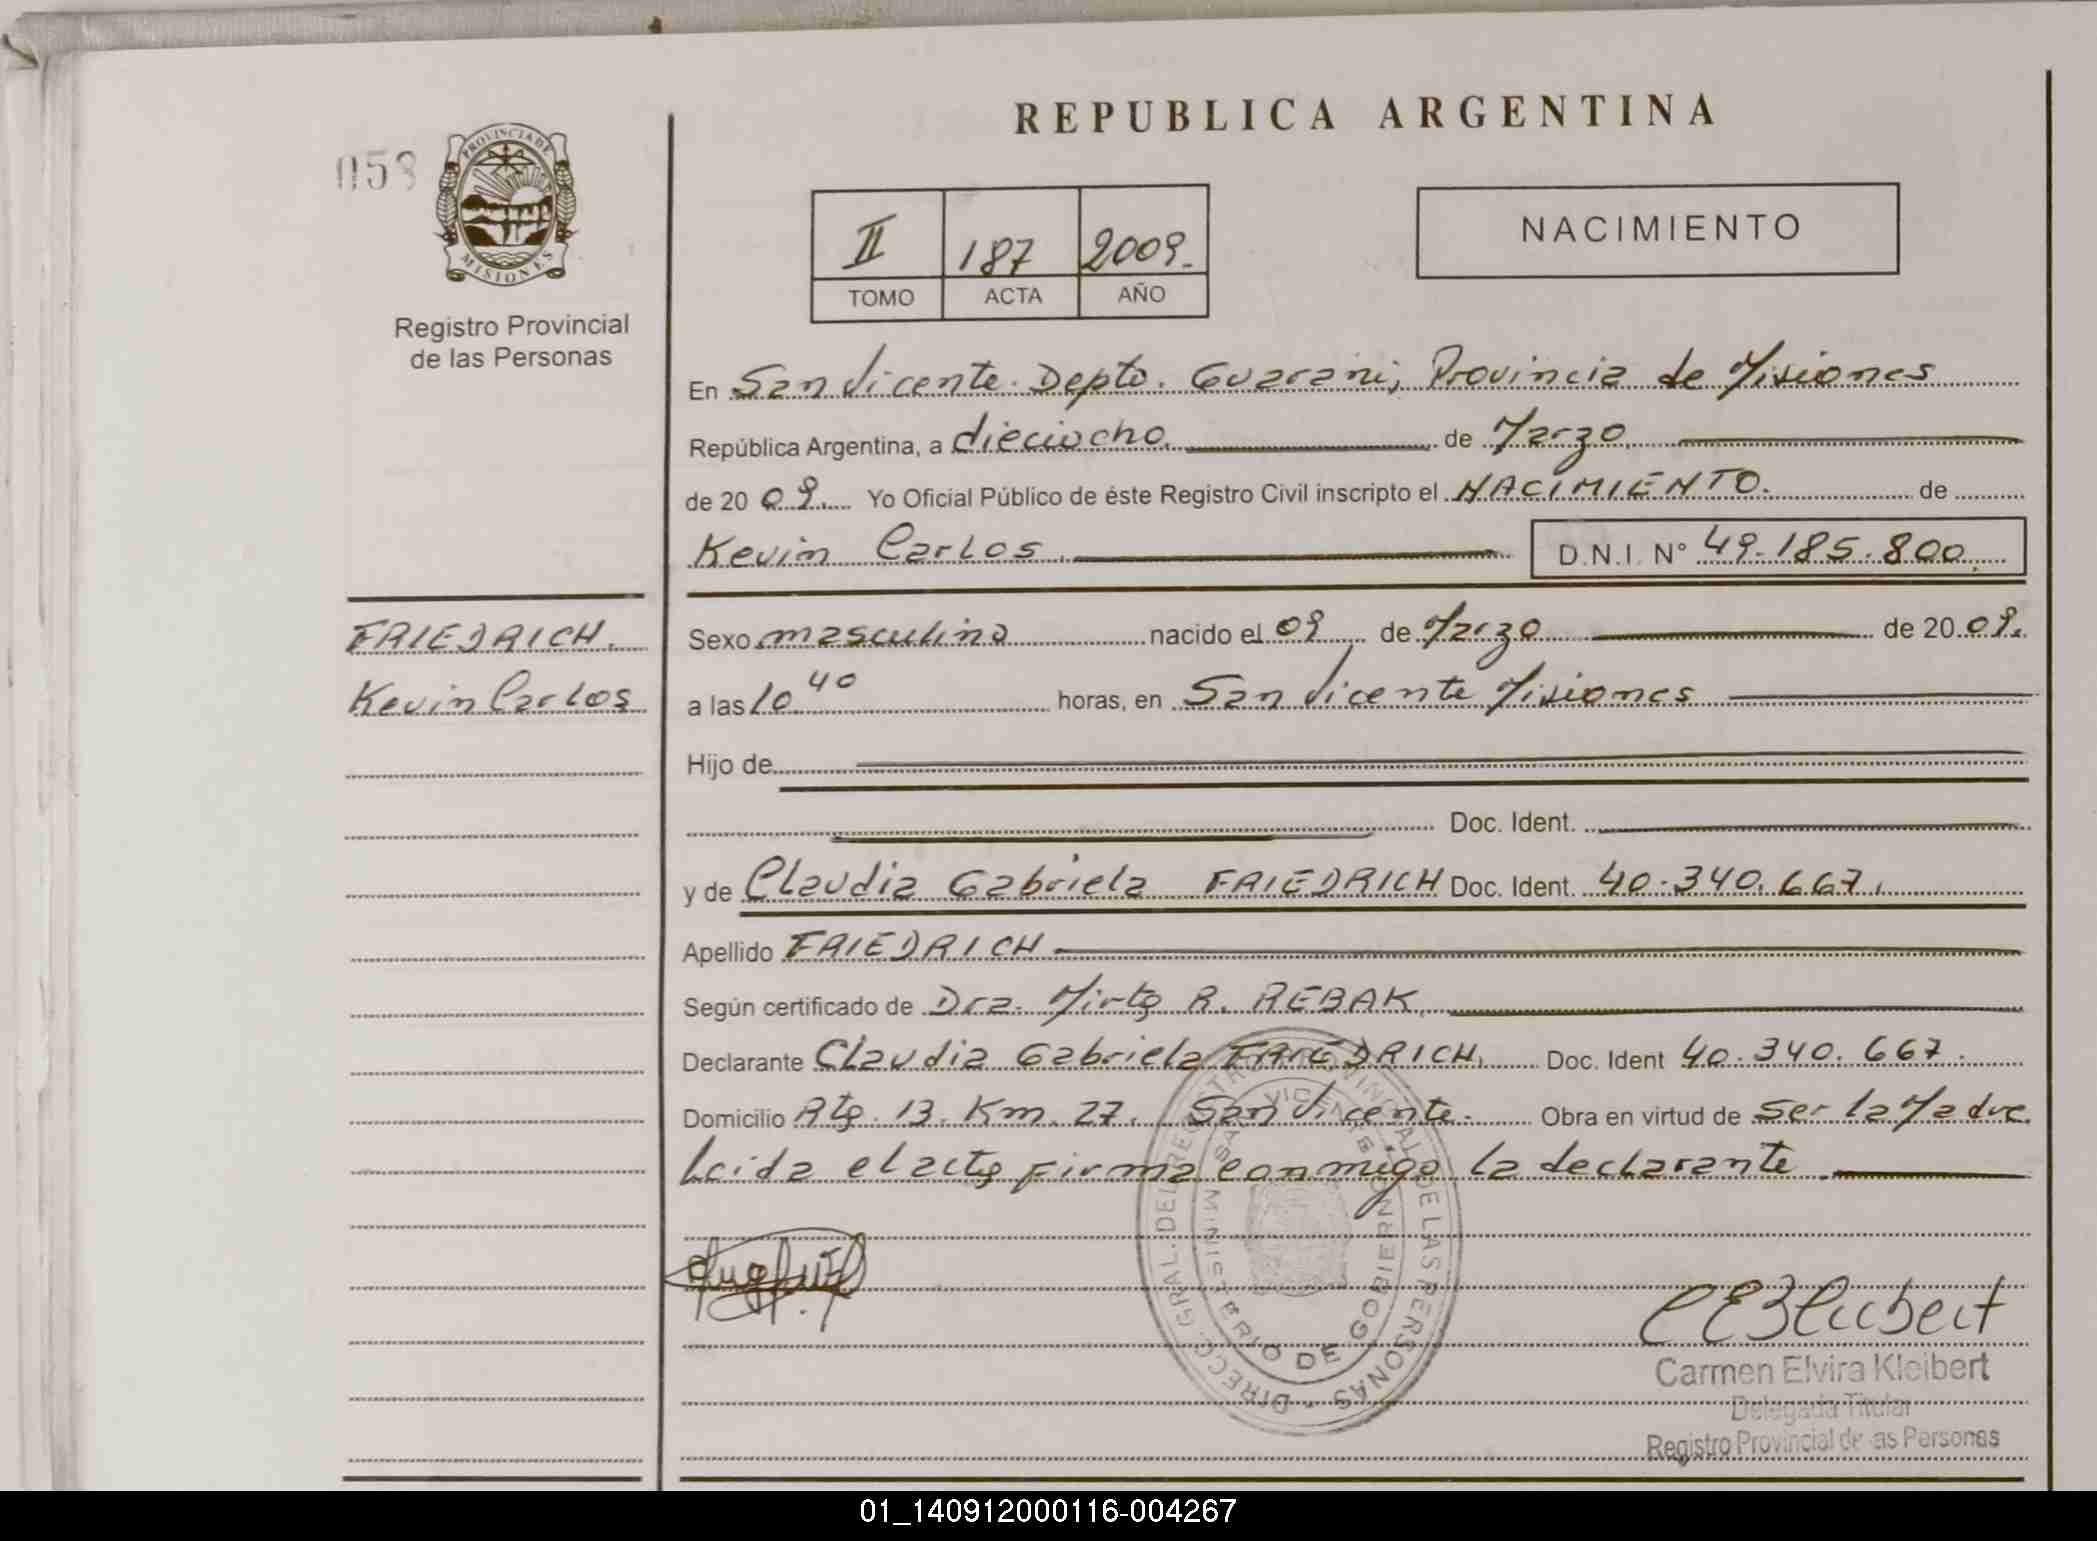 REPUBLICA ARGENTINA
058
PROVINCIA DE
MISIONES
Registro Provincial
de las Personas
II 187 2009.
TOMO ACTA AÑO
NACIMIENTO
En San Vicente. Depto. Guarani, Provincia de Misiones
República Argentina, a dieciocho. de Marzo.
de 20 09. Yo Oficial Público de éste Registro Civil inscripto el NACIMIENTO. de
Kevin Carlos. D.N.I. N° 49.185.800.
FRIEDRICH.
Kevin Carlos
Sexo masculino nacido el 09 de Marzo de 20 09.
a las 10 40 horas, en San Vicente Misiones
Hijo de
Doc. Ident.
y de Claudia Gabriela FRIEDRICH Doc. Ident. 40.340.667.
Apellido FRIEDRICH
Según certificado de Dra. Mirta R. REBAK.
Declarante Claudia Gabriela FRIEDRICH. Doc. Ident 40.340.667.
Domicilio Rta. 13. Km. 27. San Vicente. Obra en virtud de Ser la Madre.
Leida el acta firma conmigo la declarante
DIRECC. GRAL. DEL REGISTRO PROVINCIAL DE LAS PERSONAS -
MINISTERIO DE GOBIERNO
SAN VICENTE
Carmen Elvira Kleibert
Delegada Titular
Registro Provincial de las Personas
01_140912000116-004267